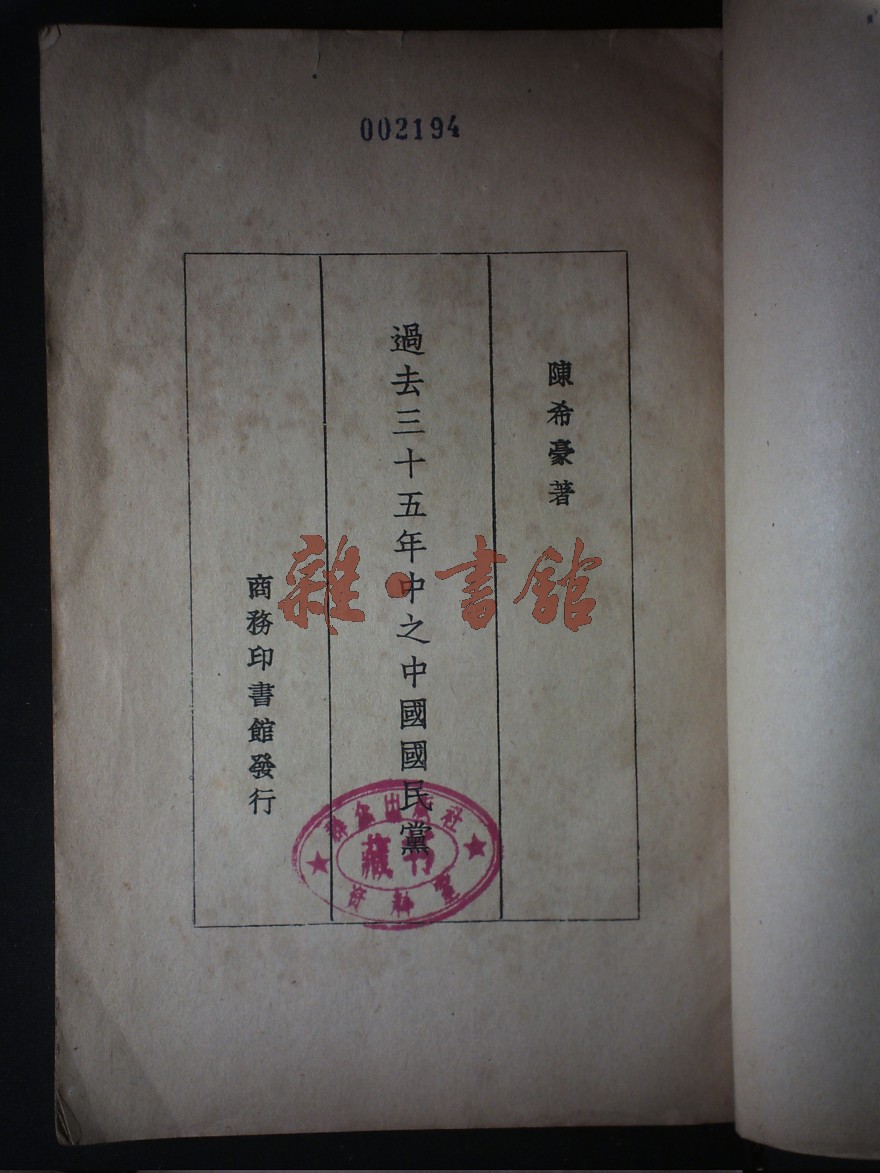 002194
陳希豪著
過去三十五年中之中國國民黨
商務印書館發行
雜·書館
群众出版社
藏书
資料室